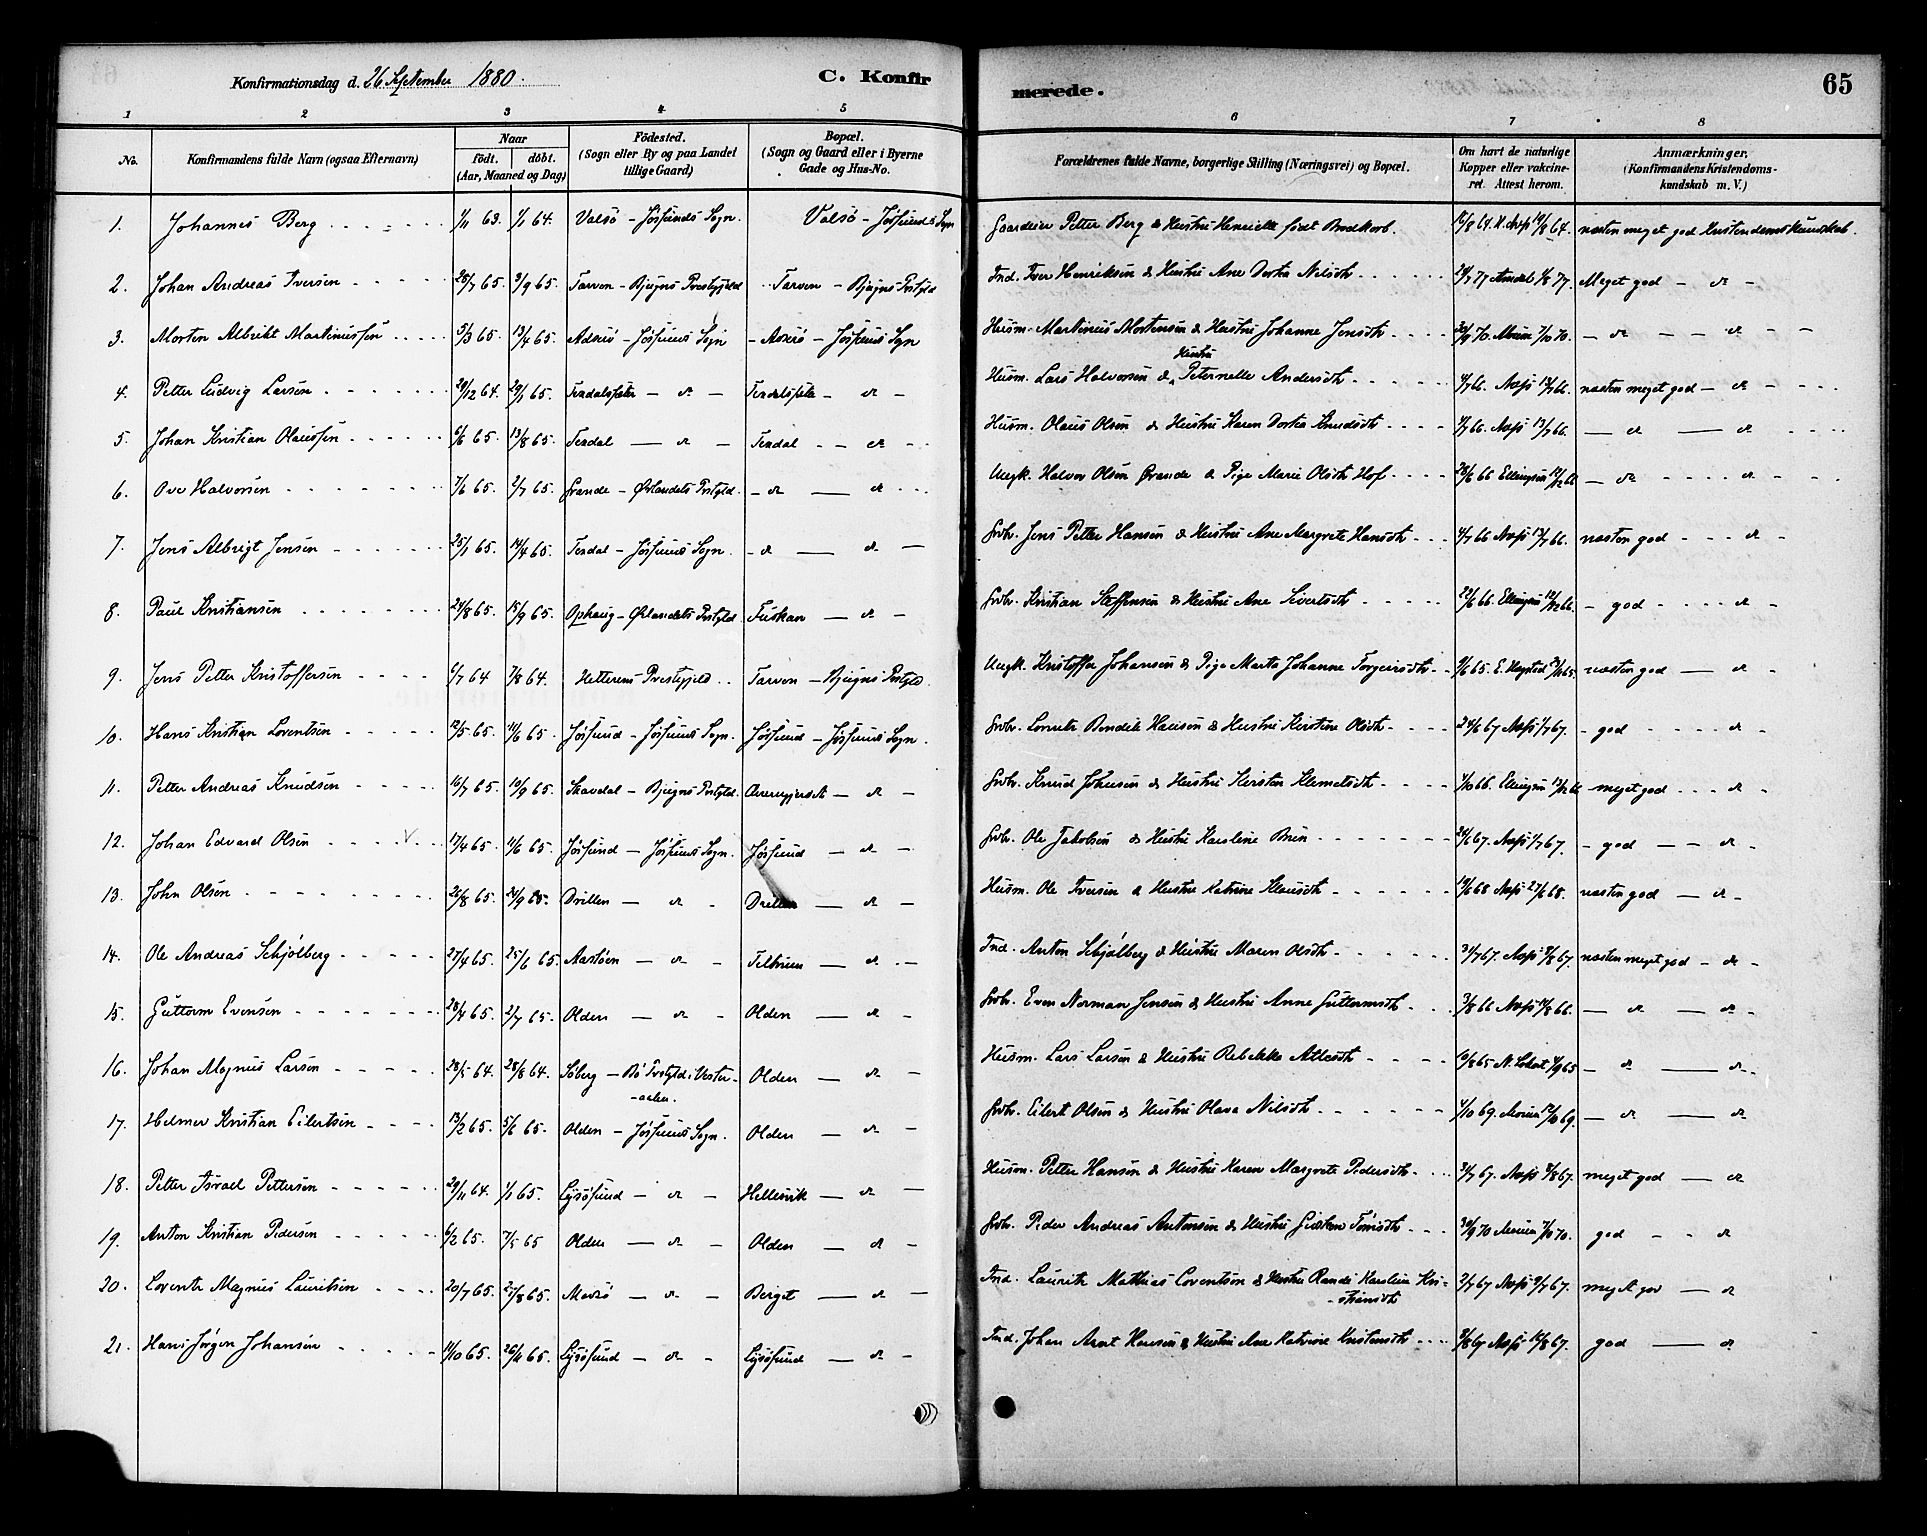 Konfirmationsdag d. 26 September 1880.
C. Konfir
merede.
65
1 2 3 4 5 6 7 8
No.
Konfirmandens fulde Navn (ogsaa Efternavn)
Naar
födt. döbt.
(Aar, Maaned og Dag)
Födested.
(Sogn eller By og paa Landet
tillige Gaard)
Bopæl.
(Sogn og Gaard eller i Byerne
Gade og Hus-No.
Forældrenes fulde Navne, borgerlige Stilling (Næringsvei) og Bopæl.
Om havt de naturlige
Kopper eller vakcine-
ret. Attest herom.
Anmærkninger.
(Konfirmandens Kristendoms-
kundskab m. V.)
1. Johannes Berg 1/11 63. 1/1 64. Valsö - Jössunds Sogn. Valsö - Jössunds Sogn Gaardeier Petter Berg & Hustru Henriette født Brodkorb. næsten meget god Kristendomskundskab.
2. Johan Andreas Iversen 28/7 65. 3/9 65. Tarven - Bjugns Prestegjeld Tarven - Bjugns Prstgld Ind. Iver Henriksen & Hustru Ane Dorta Nilsdtr Meget god - do -
3. Morten Albrikt Martinussen 5/3 65. 13/4 65. Asserö - Jössunds Sogn - Asserö - Jössunds Sogn Husm. Martinus Mortensen & Hustru Johanne Jensdtr 30/9 70. 7/10 70. - do - - do - -
4. Petter Ludvig Larsen 29/12 64. 29/1 65. Texdalsæter - do - Texdalsæter - do - Husm. Lars Halvorsen & Hustru Peternelle Andersdtr 4/7 66. Næss 13/7 66. næsten meget god - do -
5. Johan Kristian Olaussen 6/6 65. 13/8 65. Texdal - do - Texdal - do - Husm. Olaus Olsen & Hustru Karen Dorta Knudsdtr 4/7 66. Næss 13/7 66. - do - do
6. Ove Halvorsen 7/6 65. 2/7 65. Grande - Ørlandets Prstgld. - do - do Ungk. Halvor Olsen Grande & Pige Marie Olsdtr Hof 28/6 66 Ellingsen 12/12 66 - do - do -
7. Jens Albrigt Jensen 25/1 65. 14/4 65. Texdal - Jössunds Sogn. - do - do - Grbr. Jens Petter Hansen & Hustru Ane Margrete Hansdtr 4/7 66 Næss 13/7 66. næsten god - do -
8. Paul Kristiansen 24/8 65. 15/9 65. Ophaug - Ørlandets Prstgld. Fuskan - do - Grbr. Kristian Steffensen & Hustru Ane Sivertsdtr 22/6 66. Ellingsen 12/12 66. - god - do -
9. Jens Petter Kristoffersen 6/7 64 7/8 64. Hitterens Prestegjeld Tarven - Bjugns Prstgld. Ungk. Kristoffer Johansen & Pige Marta Johanne Torgersdtr næsten god - do
10. Hans Kristian Lorentsen 12/5 65. 11/6 65. Jössund - Jössunds Sogn. Jössund - Jössunds Sogn. Grbr. Lorents Bendik Hansen & Hustru Kirstine Olsdtr 24/6 67 Næss 1/7 67. - god - do -
11. Petter Andreas Knudsen 16/7 65. 10/9 65. Skavdal - Bjugns Prstgld. - do - Grbr. Knud Johnsen & Hustru Kirsten Klemetsdtr 1/10 66. Ellingsen 12/12 66 meget god - do -
12. Johan Edvard Olsen 17/4 65. 11/6 65. Jössund - Jössunds Sogn. Jössund - do - Grbr. Ole Jakobsen & Hustru Karoline Brun 24/6 67. Næss 1/7 67. - god - do -
13. John Olsen 26/8 65. 24/9 65. Drillen - do - Drillen - do - Husm. Ole Iversen & Hustru Katrine Klausdtr 19/6 68 Næss 27/6 68. næsten god - do -
14. Ole Andreas Schjølberg 27/4 65. 25/6 65. Aastöen - do - Teltruen - do - Ind. Anton Schjølberg & Hustru Maren Olsdtr 31/7 67. Næss 8/8 67. næsten meget god - do -
15. Guttorm Evensen 28/4 65. 2/7 65. Olden - do - Olden - do - Grbr. Even Norman Jensen & Hustru Anne Guttormsdtr 3/8 66 Næss 14/8 66. - do - do -
16. Johan Magnus Larsen 28/5 64. 28/8 64. Söberg - Bö Prstgld. i Vester- Olden - do - Husm. Lars Larsen & Hustru Rebekka Atlesdtr - do - do -
-aalen.
17. Helmer Kristian Eilertsen 13/2 65. 5/6 65. Olden - Jössunds Sogn. Olden - do - Grbr. Eilert Olsen & Hustru Olava Nilsdtr - do - do
18. Petter Israel Pettersen 29/11 64. 1/1 65. Lysösund - do - Hellesvik - do - Husm. Petter Hansen & Hustru Karen Margrete Pedersdtr 31/7 67. Næss 8/8 67. meget god - do
19. Anton Kristian Pedersen 6/2 65. 7/5 65 Olden - do - Olden - do - Grbr. Peder Andreas Antonsen & Hustru Gjertine Tönsdtr 30/9 70 7/10 70. god - - do
20. Lorents Magnus Lauritsen 20/7 65. 27/8 65. Madsö - do - Berget - do - Ind. Laurits Mathias Lorentsen & Hustru Randi Karolina Kri-
-stiansdtr 2/7 67 Næss 9/7 67. meget god - do
21. Hans Jørgen Johansen 11/10 65. 26/11 65. Lysösund - do - Lysösund - do - Ind. Johan Arnt Hansen & Hustru Ane Katrine Kristensdtr 8/8 67 Næss 16/8 67. god - do